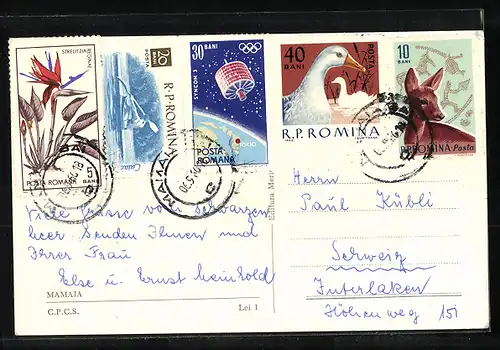 STRELITZIA
REGINAE
POSTA ROMANA
5
BANI
20
BANI
POSTA
R.P.ROMINA
Caiac
30
BANI
SYNCOM 3
TOKIO
POSTA
ROMANA
40
BANI
POSTA
R.P.ROMINA
10
BANI
R.P.ROMINA-Posta
MAMAIA
Viele Grüsse vom Schwarzen
Meer senden Ihnen und
Ihrer Frau
Else u. Ernst Meinhold
MAMAIA
C.P.C.S.
Lei 1
Editura Meri
Herrn
Paul Kübli
Schweiz
Interlaken
Höhenweg 15